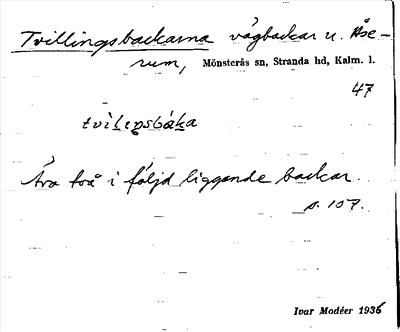 Tvillingsbackarna vägbackar u. Åse-
rum, Mönsterås sn, Stranda hd, Kalm. l.
47
tvìliŋsbàka
Äro två i följd liggande backar.
s. 107.
Ivar Modéer 1936